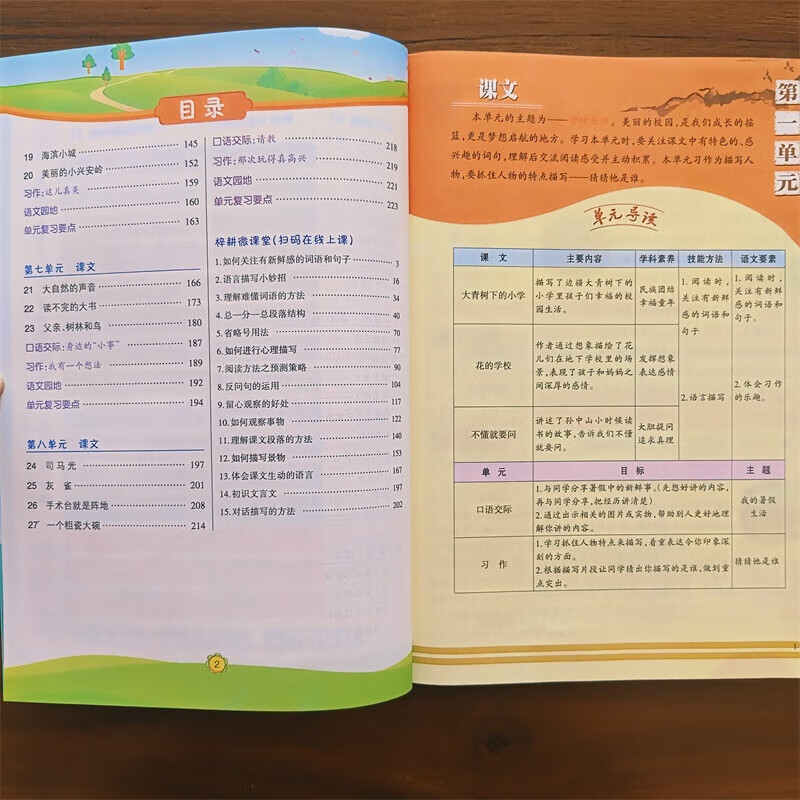 目录
19 海滨小城 145
20 美丽的小兴安岭 152
习作:这儿真美 159
语文园地 160
单元复习要点 163
第七单元 课文
21 大自然的声音 166
22 读不完的大书 173
23 父亲、树林和鸟 180
口语交际:身边的“小事” 187
习作:我有一个想法 189
语文园地 192
单元复习要点 194
第八单元 课文
24 司马光 197
25 灰雀 201
26 手术台就是阵地 208
27* 一个粗瓷大碗 214
口语交际:请教 218
习作:那次玩得真高兴 219
语文园地 221
单元复习要点 223
梓耕微课堂(扫码在线上课)
1.如何关注有新鲜感的词语和句子 3
2.语言描写小妙招 16
3.理解难懂词语的方法 34
4.总一分一总段落结构 40
5.省略号用法 70
6.如何进行心理描写 77
7.阅读方法之预测策略 90
8.反问句的运用 104
9.留心观察的好处 117
10.如何观察事物 122
11.理解课文段落的方法 140
12.如何描写景物 153
13.体会课文生动的语言 167
14.初识文言文 197
15.对话描写的方法 202
2
第一单元
课文
本单元的主题为——学校生活。美丽的校园,是我们成长的摇
篮,更是梦想启航的地方。学习本单元时,要关注课文中有特色的、感
兴趣的词句,理解后交流阅读感受并主动积累。本单元习作为描写人
物,要抓住人物的特点描写——猜猜他是谁。
单元导读
课文 主要内容 学科素养 技能方法 语文要素
大青树下的小学
描写了边疆大青树下的
小学里孩子们幸福的校
园生活。
民族团结
幸福童年
花的学校
作者通过想象描绘了花
儿们在地下学校里的场
景,表现了孩子和妈妈之
间深厚的感情。
发挥想象
表达感情
不懂就要问
讲述了孙中山小时候读
书的故事,告诉我们不懂
就要问。
大胆提问
追求真理
1.阅读时,
关注有新鲜
感的词语和
句子
2.语言描写
1.阅读时,
关注有新鲜
感的词语和
句子。
2.体会习作
的乐趣。
单元 目标 主题
口语交际
1.与同学分享暑假中的新鲜事。(先想好讲的内容,
再与同学分享,把经历讲清楚)
2.通过出示相关的图片或实物,帮助别人更好地理
解你讲的内容。
我的暑假
生活
习作
1.学习抓住人物特点来描写,着重表达令你印象深
刻的方面。
2.根据描写片段让同学猜出你描写的是谁,做到重
点突出。
猜猜他是谁
1